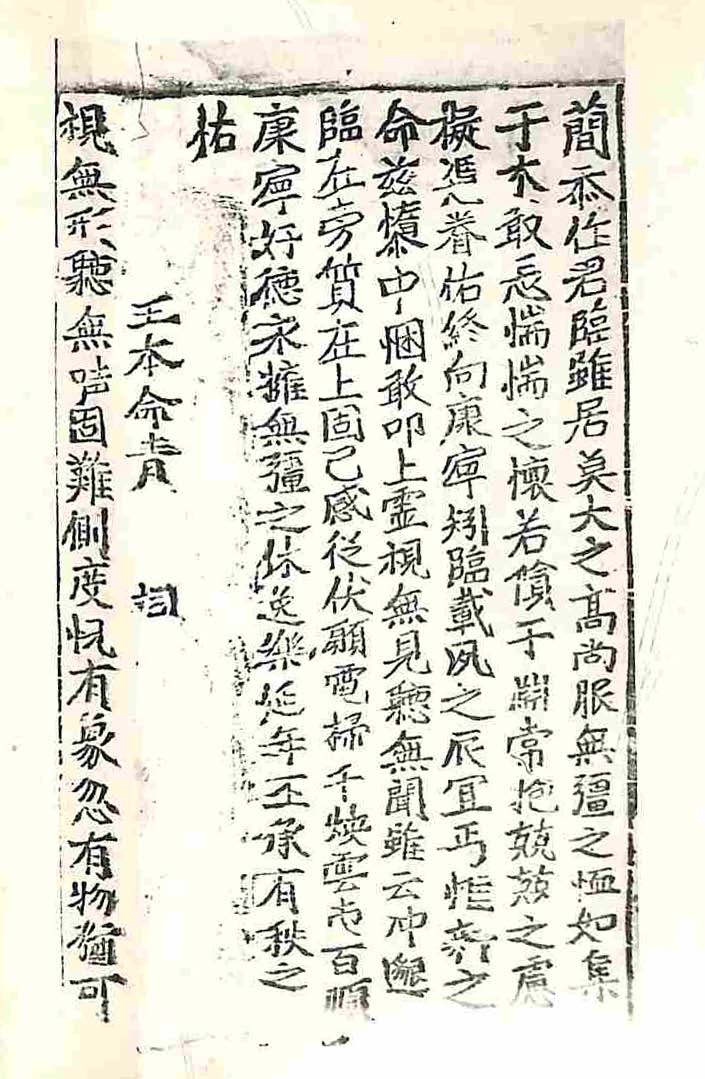 蕳忝作君臨雖居莫大之髙尚服無疆之恤如集
于木敢忘惴惴之懷若隕于淵常抱兢兢之慮
擬慿眷佑終向康寕矧臨載夙之辰宜丐惟新之
命玆憜中悃敢叩上霊視無見聽無聞雖云冲邈
臨在旁質在上固已感從伏願電掃千焕雲屯百順
康寧好德永擁無彊之休逸樂延年丕承有秩之
祜
王本命青　詞
視無形聽無声固難側度怳有象忽有物猶可